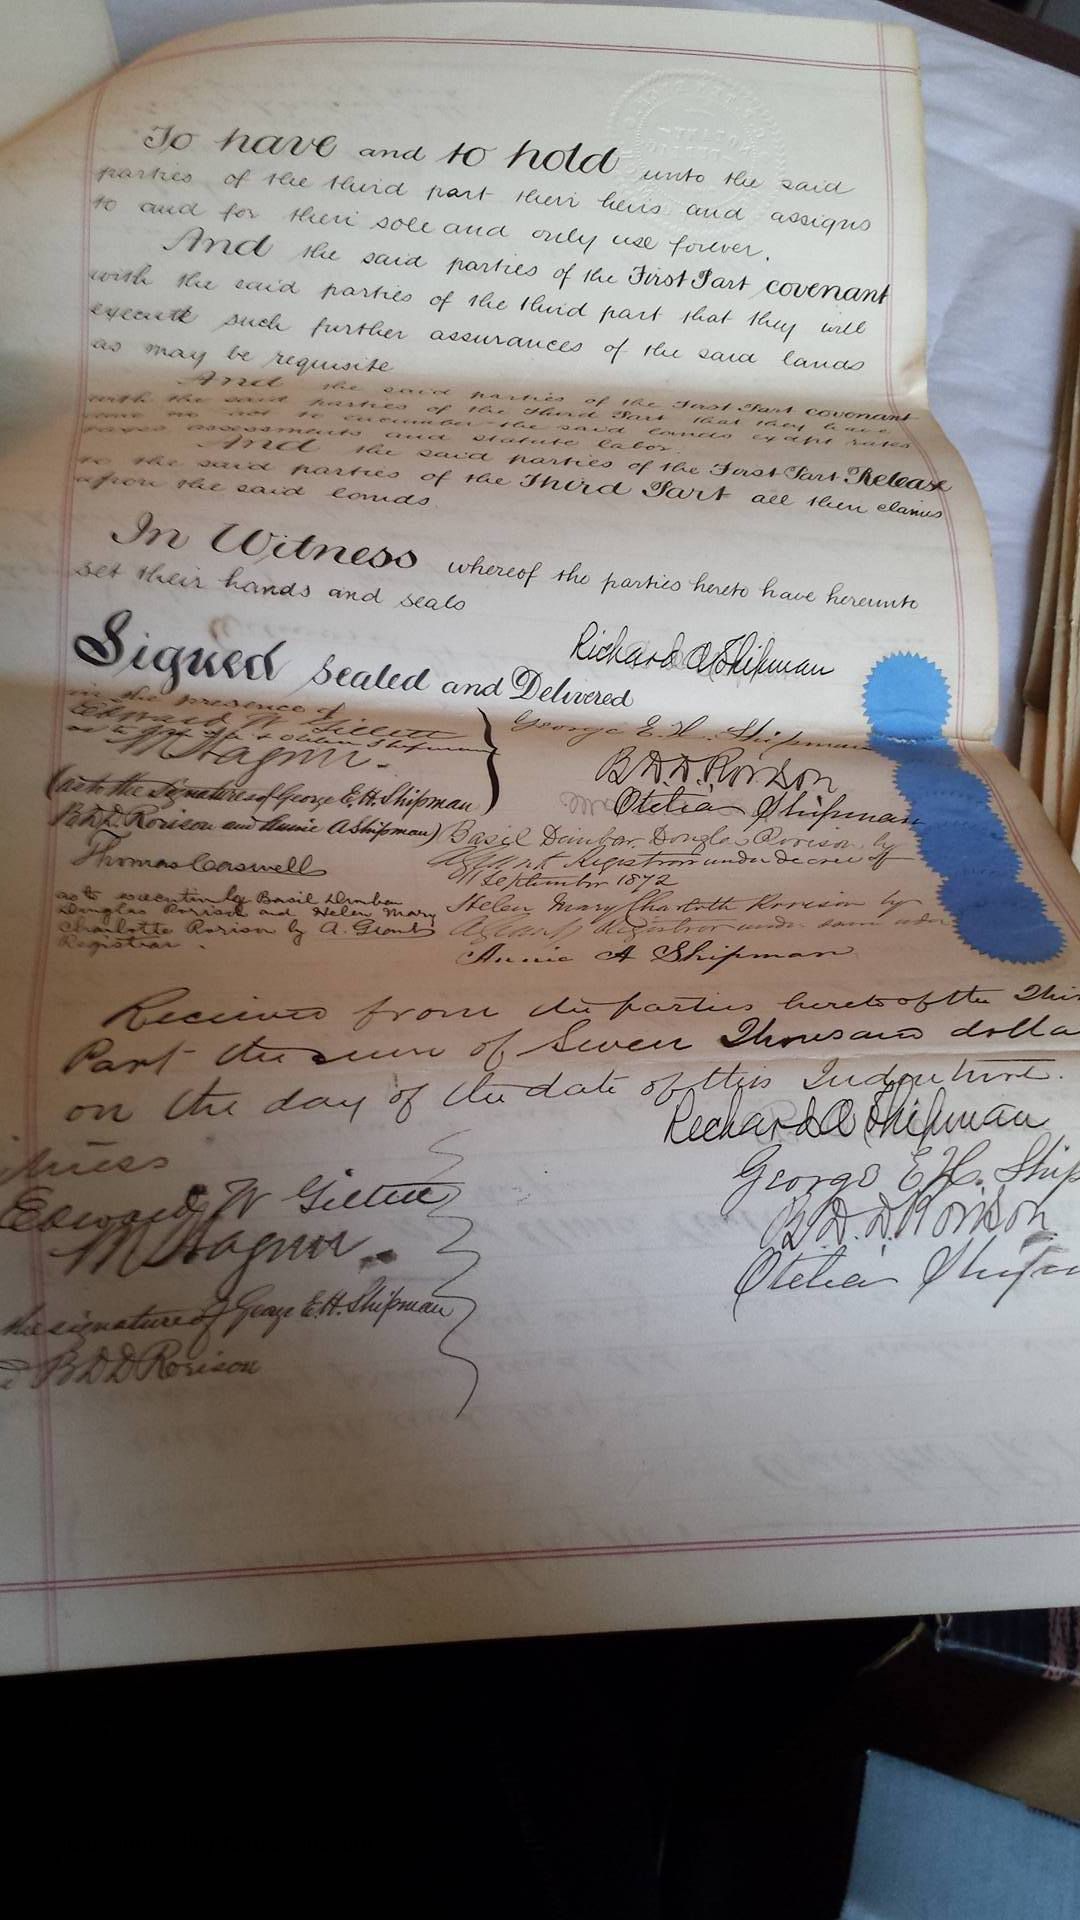 To have and to hold unto the said
parties of the third part their heirs and assigns
to and for their sole and only use forever.
And the said parties of the First Part covenant
with the said parties of the third part that they will
execute such further assurances of the said lands
as may be requisite
And the said parties of the First Part covenant
with the said parties of the Third Part that they have
done no act to encumber the said lands except rates
taxes assessments and statute labor.
And the said parties of the First Part Release
to the said parties of the Third Part all their claims
upon the said lands.
In Witness whereof the parties hereto have hereunto
set their hands and seals
Richard A Shipman
Signed sealed and Delivered
in the presence of
Edward W Gillett
as to & Otelia Shipman
M Hagner.
(as to the signatures of George E.H. Shipman
B.D.D. Rorison and Annie A Shipman)
Thomas Caswell
as to execution by Basil Dunbar
Douglas Rorison and Helen Mary
Charlotte Rorison by A. Grant
Registrar.
George E.H. Shipman
B.D.D. Rorison
Otelia Shipman
Basil Dunbar Douglas Rorison by
A Grant Registrar under decree of
September 1872
Helen Mary Charlotte Rorison by
A Grant Registrar under same
Annie A Shipman
Received from the parties hereto of the Thir
Part the sum of Seven Thousand dolla
on the day of the date of this Indenture.
Richard A Shipman
George E.H. Ship
B.D.D. Rorison
Otelia Shipm
tness
Edward W Gillett
M Hagner.
the signatures of George E.H. Shipman
B D D Rorison